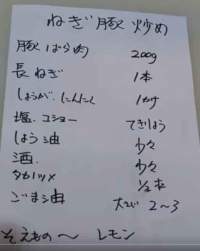 ねぎ豚炒め
豚ばら肉 200g
長ねぎ 1本
しょうが、にんにく 1かけ
塩、コショー てきりょう
しょう油 少々
酒 少々
タカノツメ 1/2本
ごま油 大さじ 2〜3
そえもの〜 レモン